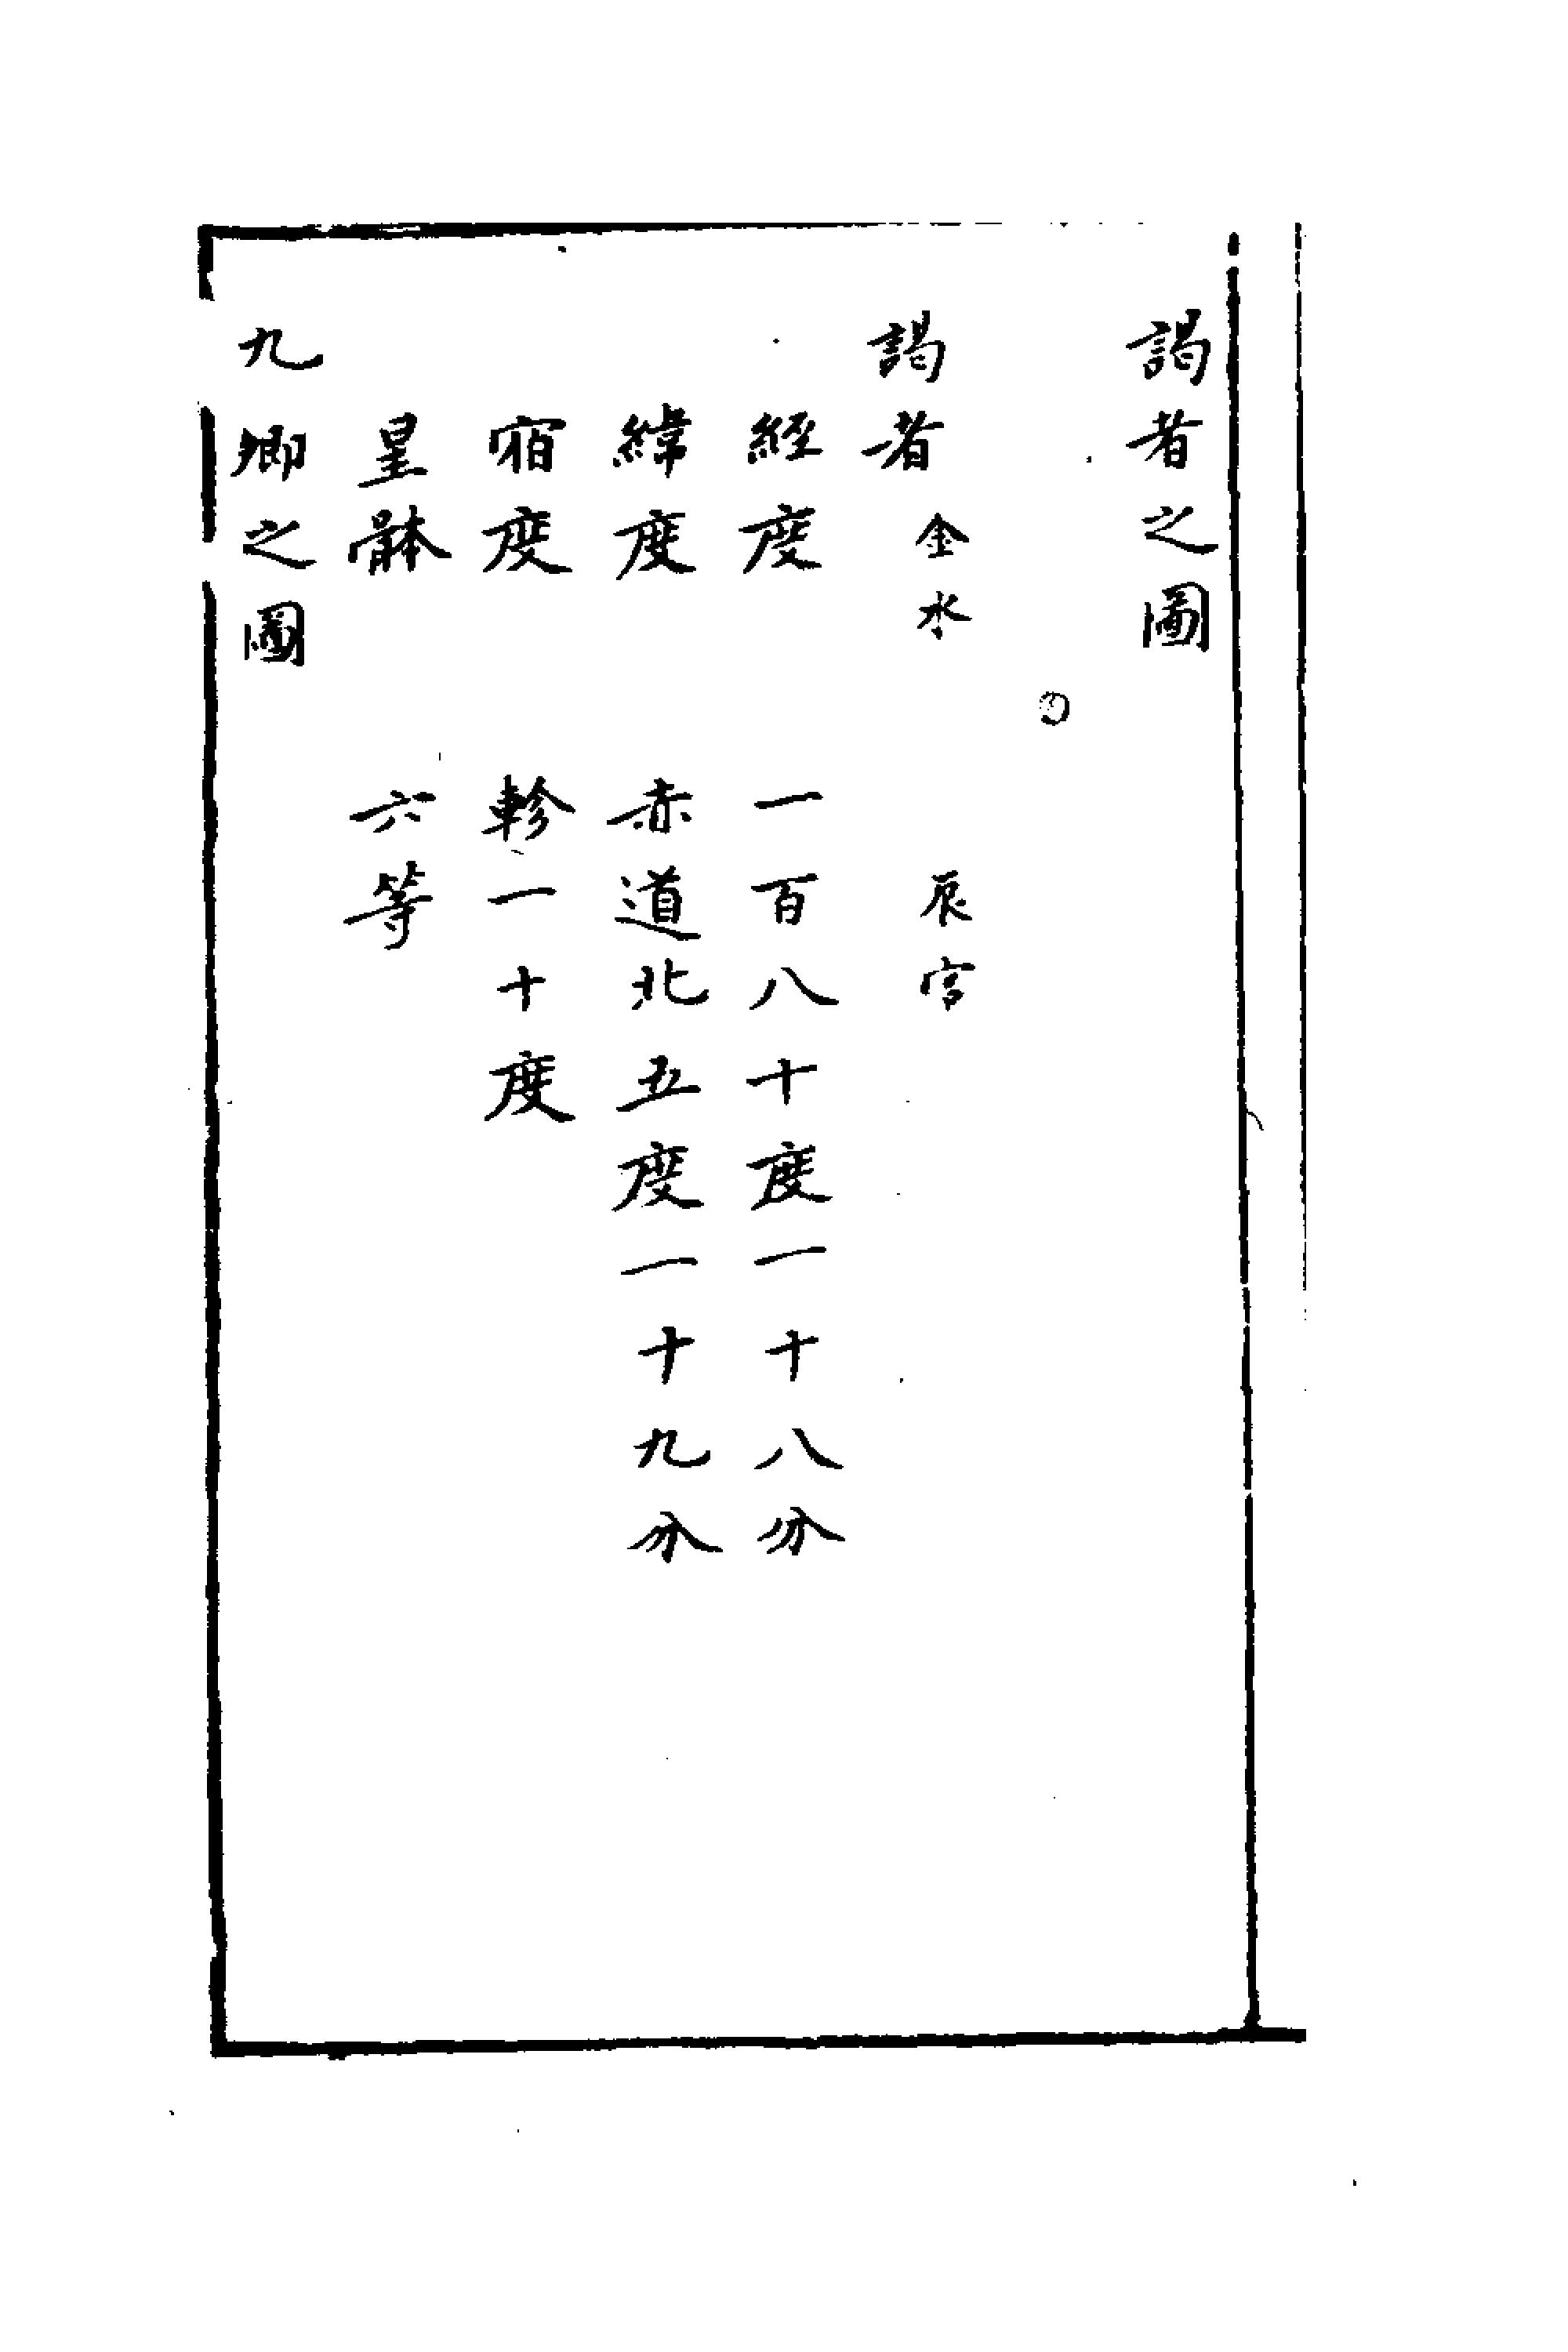 謁者之圖
謁者 金水 辰宮
經度 一百八十度一十八分
緯度 赤道北五度一十九分
宿度 軫一十度
星體 六等
九卿之圖